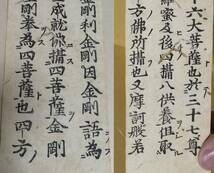 十六大菩薩也於三十七尊
羅蜜及後四攝八供養但取
方佛所攝也又摩訶般若
剛利金剛因金剛語為
成就佛攝四菩薩金剛
剛拳為四菩薩也四方